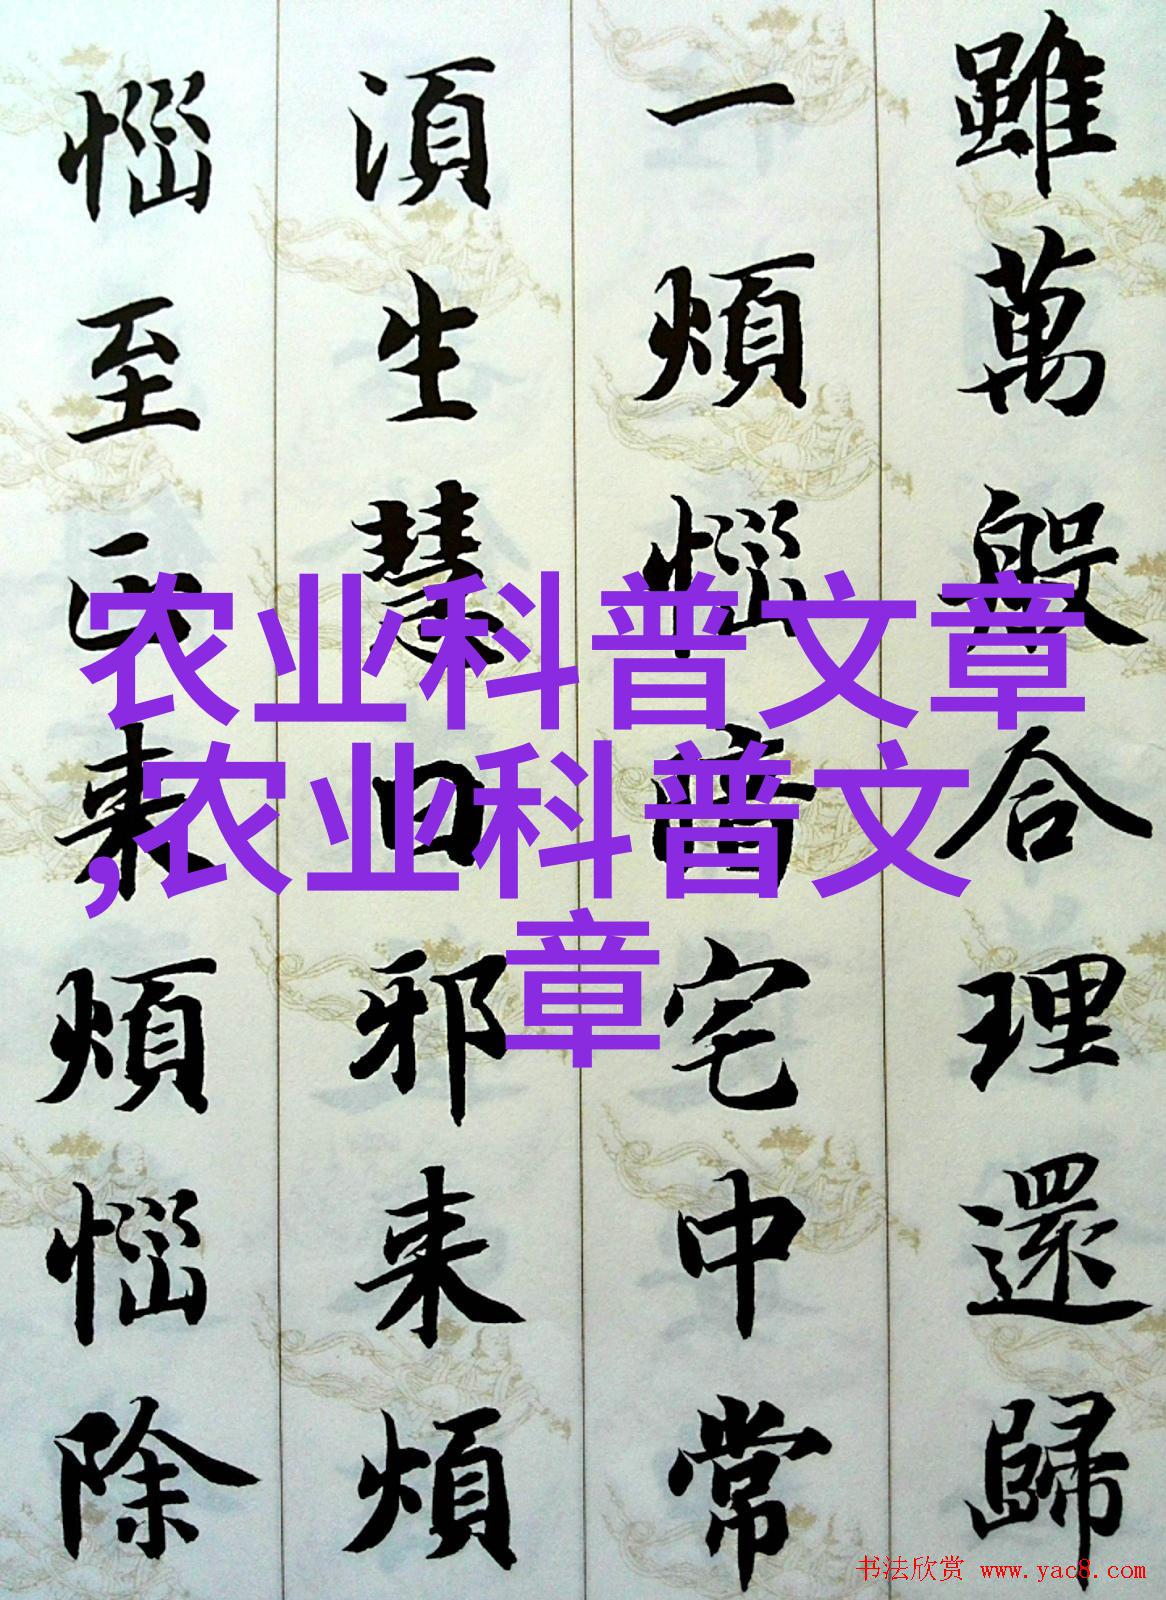 雖萬般合理還歸
一煩惱暗宅中常
湏生慧日邪来煩
惱至正来煩惱除
农业科普文章
,农业科普文
章
书法欣赏 www.yac8.com